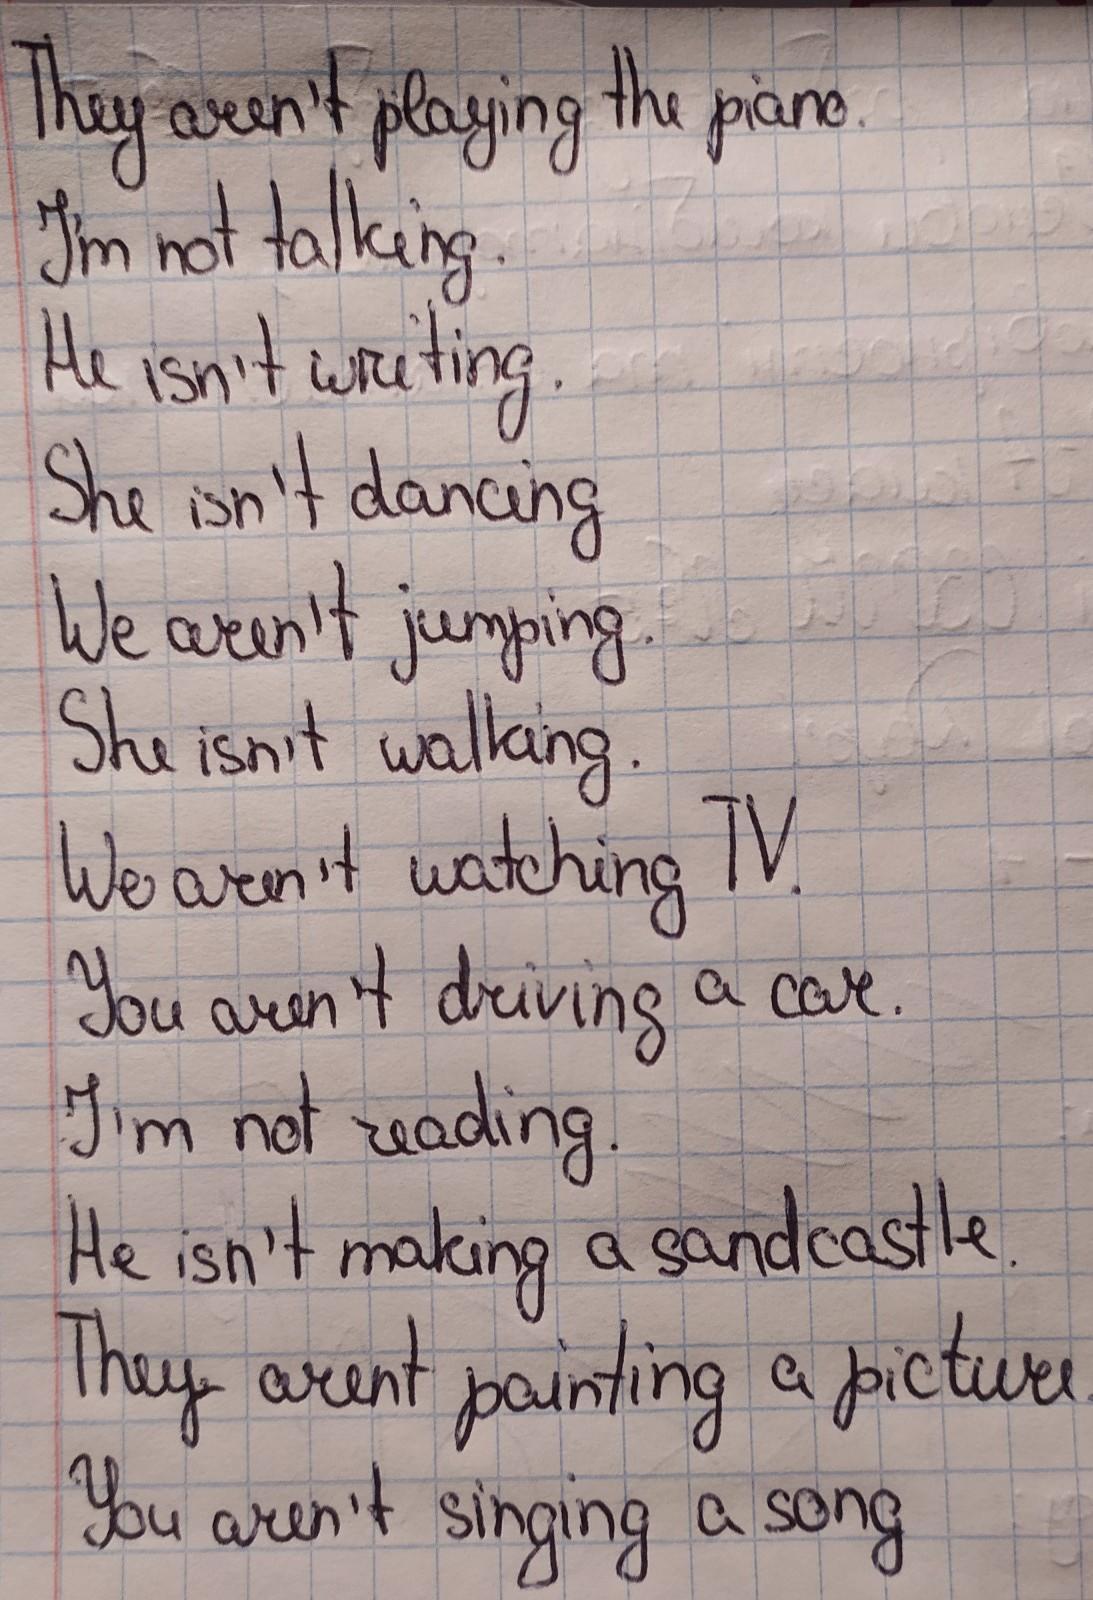 They aren't playing the piano.
I'm not talking.
He isn't writing.
She isn't dancing
We aren't jumping.
She isn't walking.
We aren't watching TV.
You aren't driving a car.
I'm not reading.
He isn't making a sandcastle.
They arent painting a picture.
You aren't singing a song